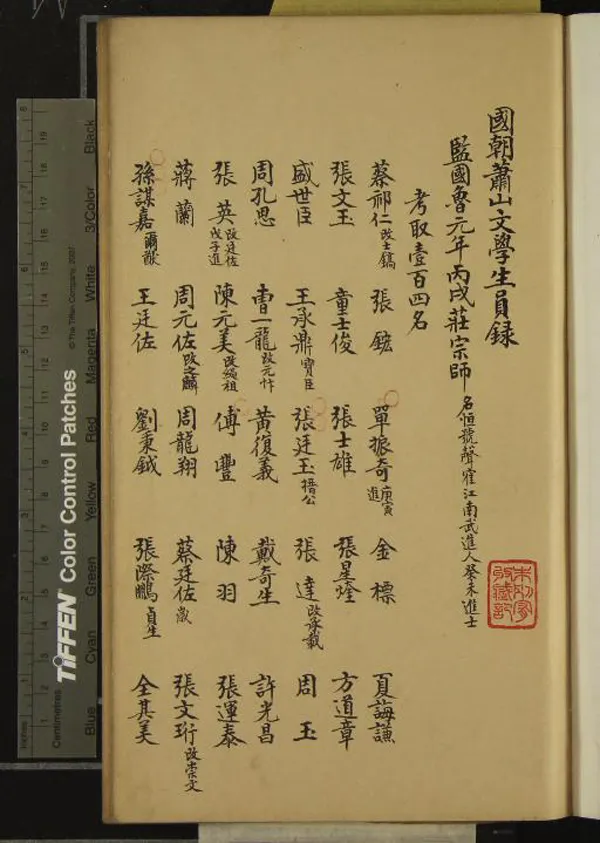 國朝蕭山文學生員録
監國魯元年丙戌莊宗師 名恒號聲 江南武進人癸未進士
考取壹百四名
蔡祁仁 改士鎬 張鋐 單振奇 庚寅進 金標 夏誨謙
張文玉 童士俊 張士雄 張星 方道章
盛世臣 王承鼎 寶臣 張廷玉 搢公 張達 改承載 周玉
周孔思 曹一龍 改元忭 黃復義 戴奇生 許光昌
張英 改廷佐戊子進 陳元美 改繩祖 傅豐 陳羽 張運泰
蔣蘭 周元佐 改之麟 周龍翔 蔡廷佐 張文珩 改崇文
孫謀嘉 爾猷 王廷佐 劉秉鉞 張際鵬 貞生 全其美
TIFFEN Color Control Patches
© The Tiffen Company, 2007
Centimetres
Blue Cyan Green Yellow Red Magenta White 3/Color Black